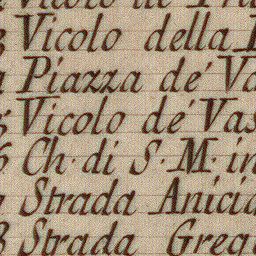 Vicolo della
Piazza de'
Vicolo de' Vas
Ch. di S. M. in
Strada Anicia
Strada Grego